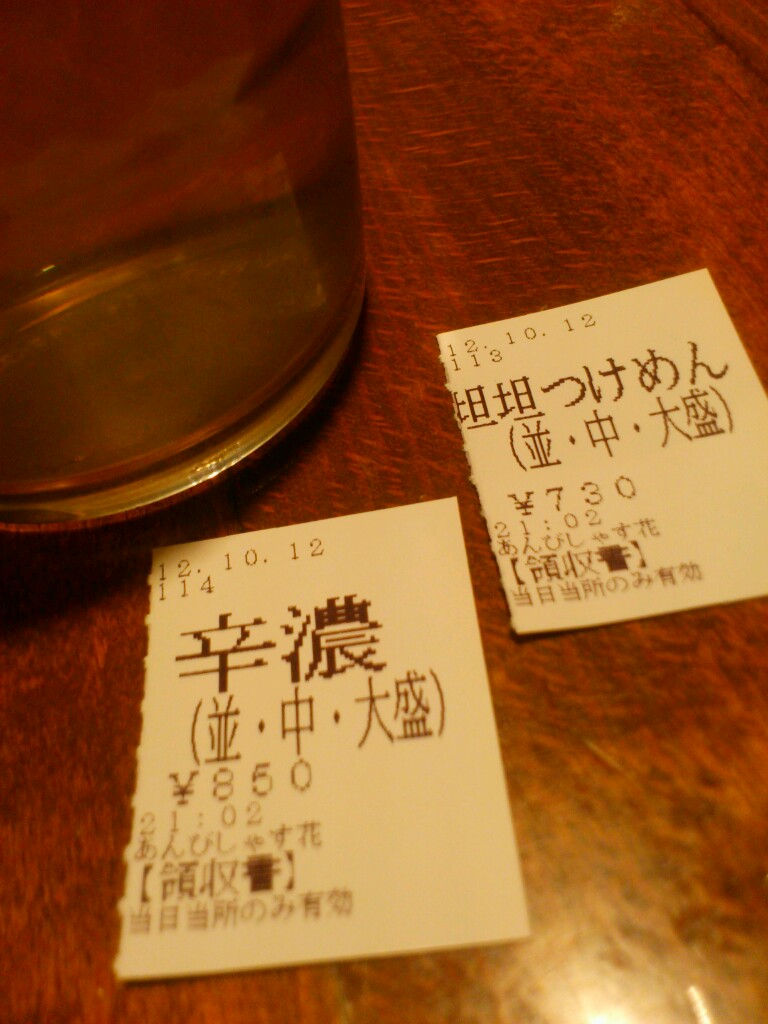 12.10.12
113
坦坦つけめん
(並・中・大盛)
¥730
21:02
あんびしゃす花
【領収書】
当日当所のみ有効
12.10.12
114
辛濃
(並・中・大盛)
¥850
21:02
あんびしゃす花
【領収書】
当日当所のみ有効